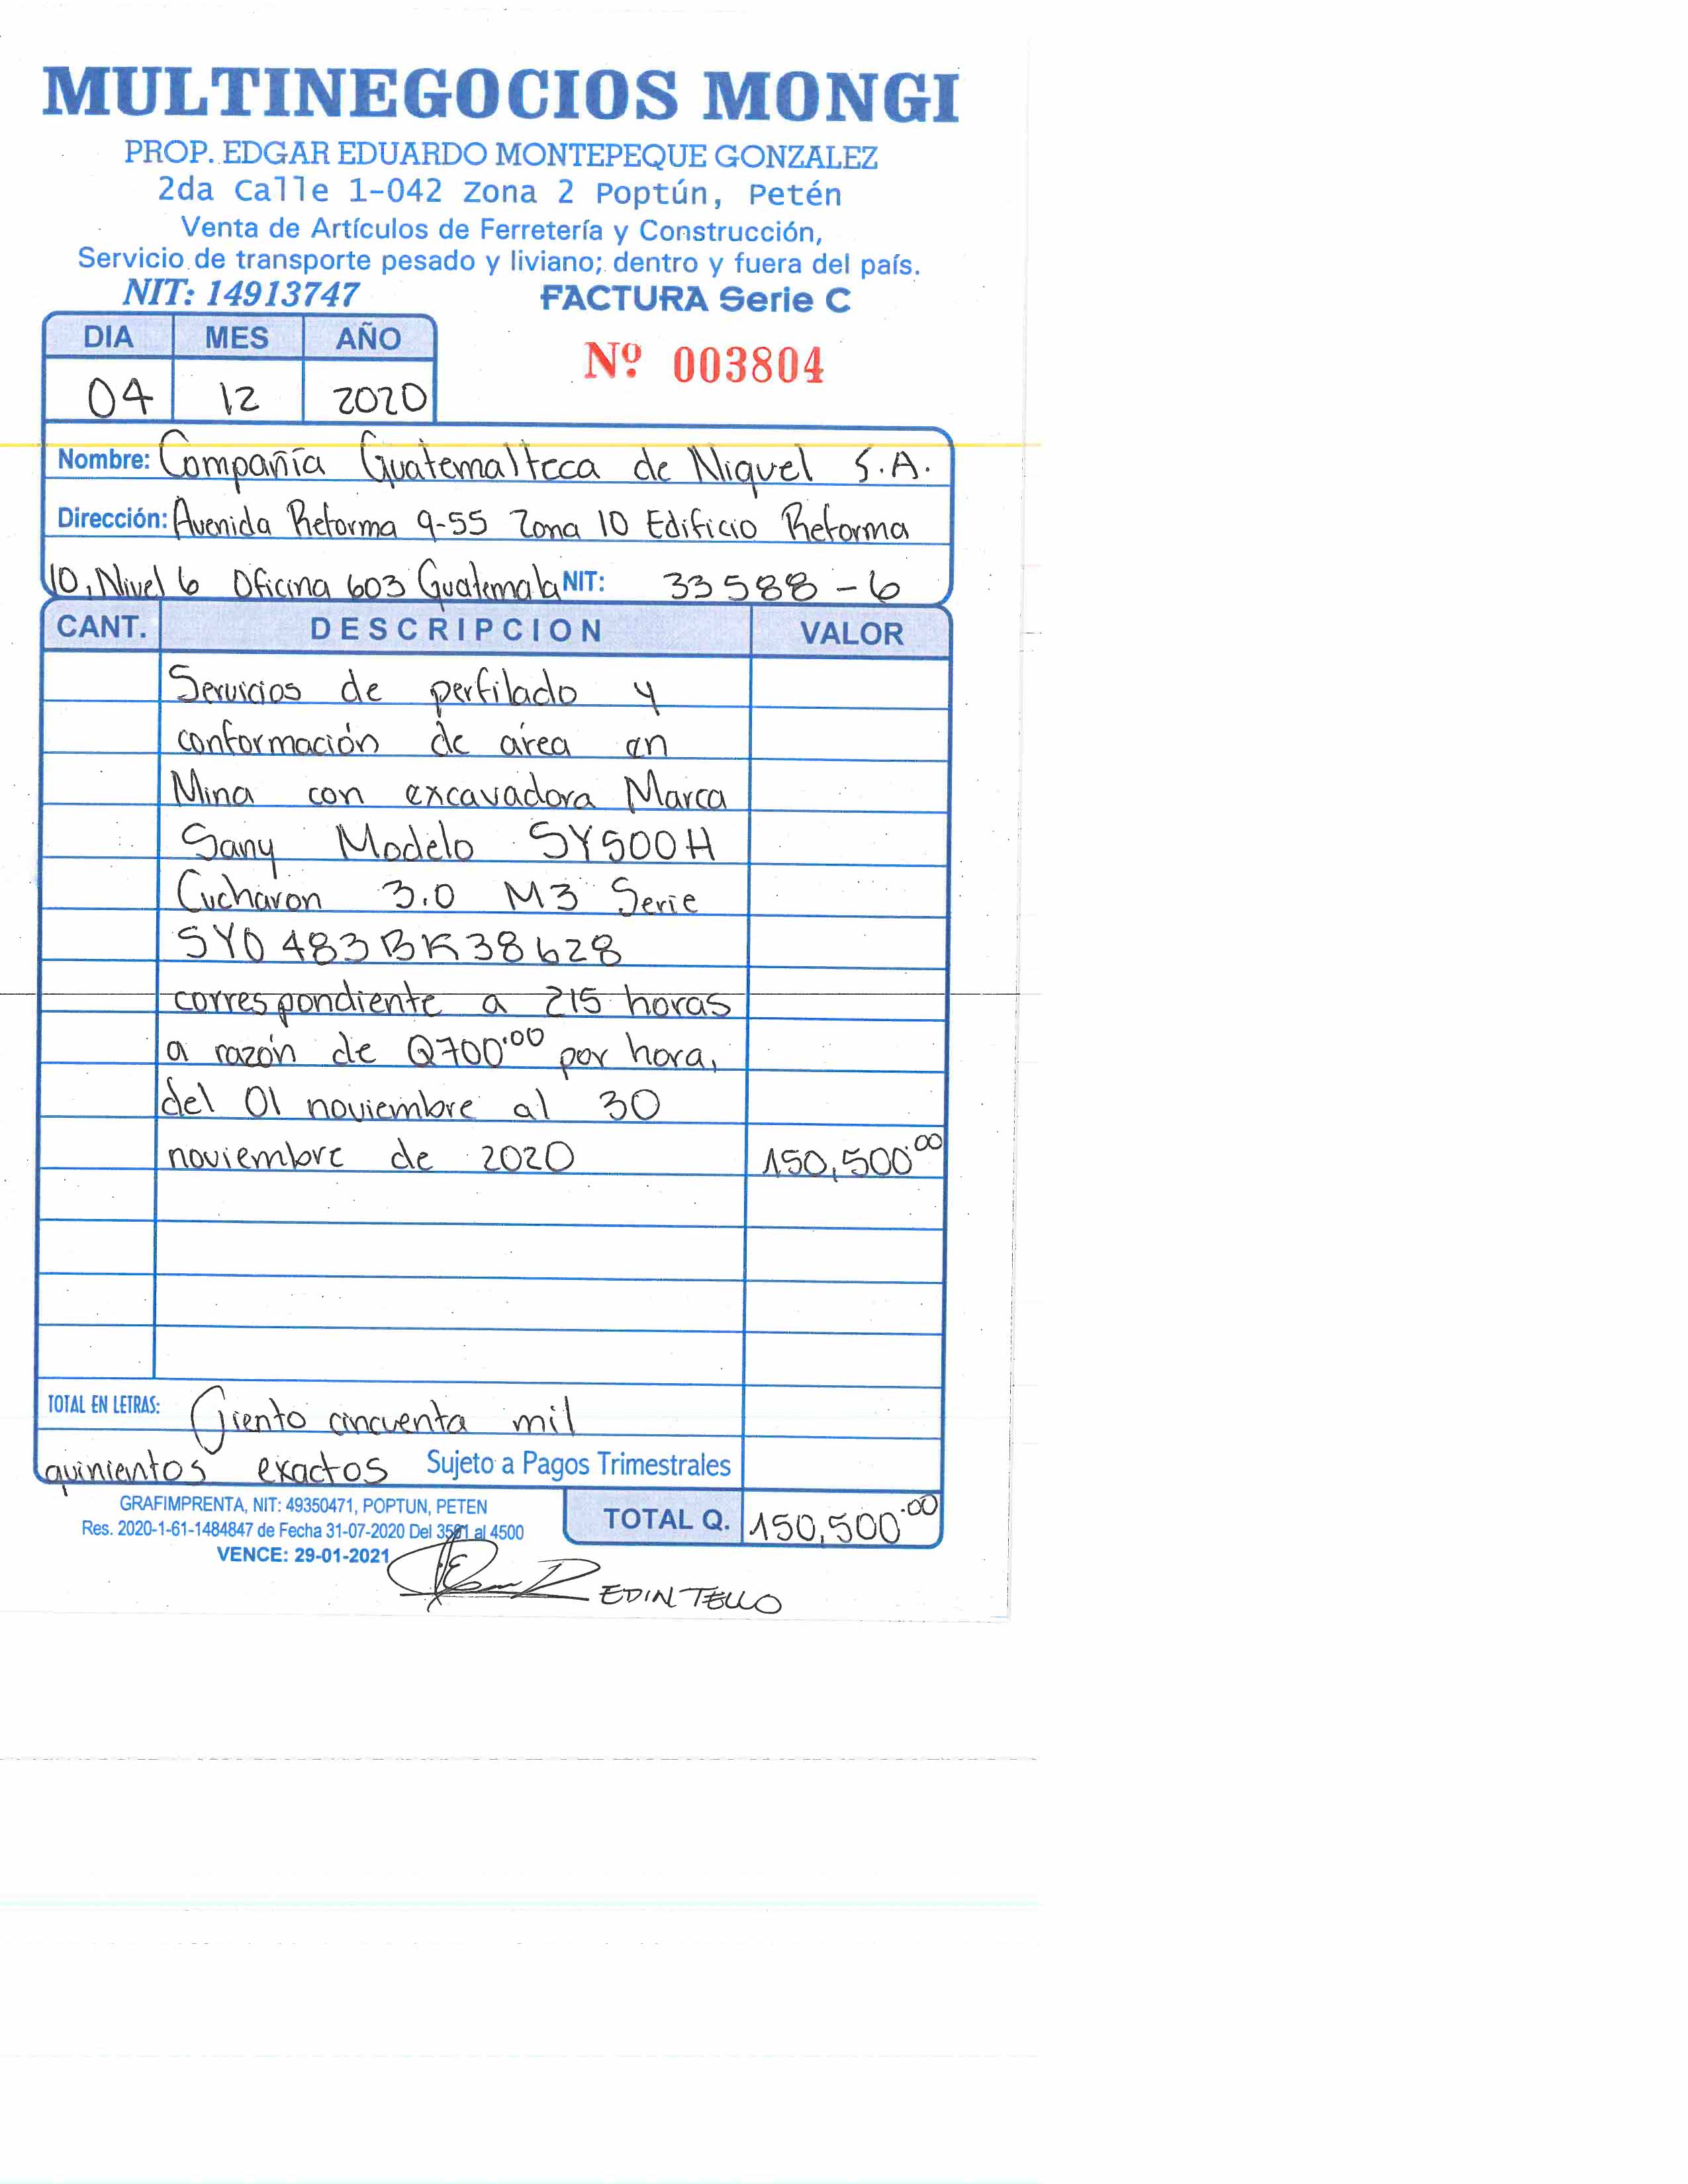 MULTINEGOCIOS MONGI
PROP. EDGAR EDUARDO MONTEPEQUE GONZALEZ
2da Calle 1-042 Zona 2 Poptún, Petén
Venta de Artículos de Ferretería y Construcción,
Servicio de transporte pesado y liviano; dentro y fuera del país.
NIT: 14913747 FACTURA Serie C
DIA MES AÑO
Nº 003804
04 12 2020
Nombre: Compañía Guatemalteca de Niquel S.A.
Dirección: Avenida Reforma 9-55 Zona 10 Edificio Reforma
10, Nivel 6 Oficina 603 Guatemala NIT: 33588-6
CANT. DESCRIPCION VALOR
Servicios de perfilado y
conformación de área en
Mina con excavadora Marca
Sany Modelo SY500H
Cucharon 3.0 M3 Serie
SY0483BK38628
correspondiente a 215 horas
a razón de Q700.00 por hora,
del 01 noviembre al 30
noviembre de 2020 150,500.00
TOTAL EN LETRAS: Ciento cincuenta mil
quinientos exactos Sujeto a Pagos Trimestrales
GRAFIMPRENTA, NIT: 49350471, POPTUN, PETEN
TOTAL Q. 150,500.00
Res. 2020-1-61-1484847 de Fecha 31-07-2020 Del 3501 al 4500
VENCE: 29-01-2021
EDIN TELLO